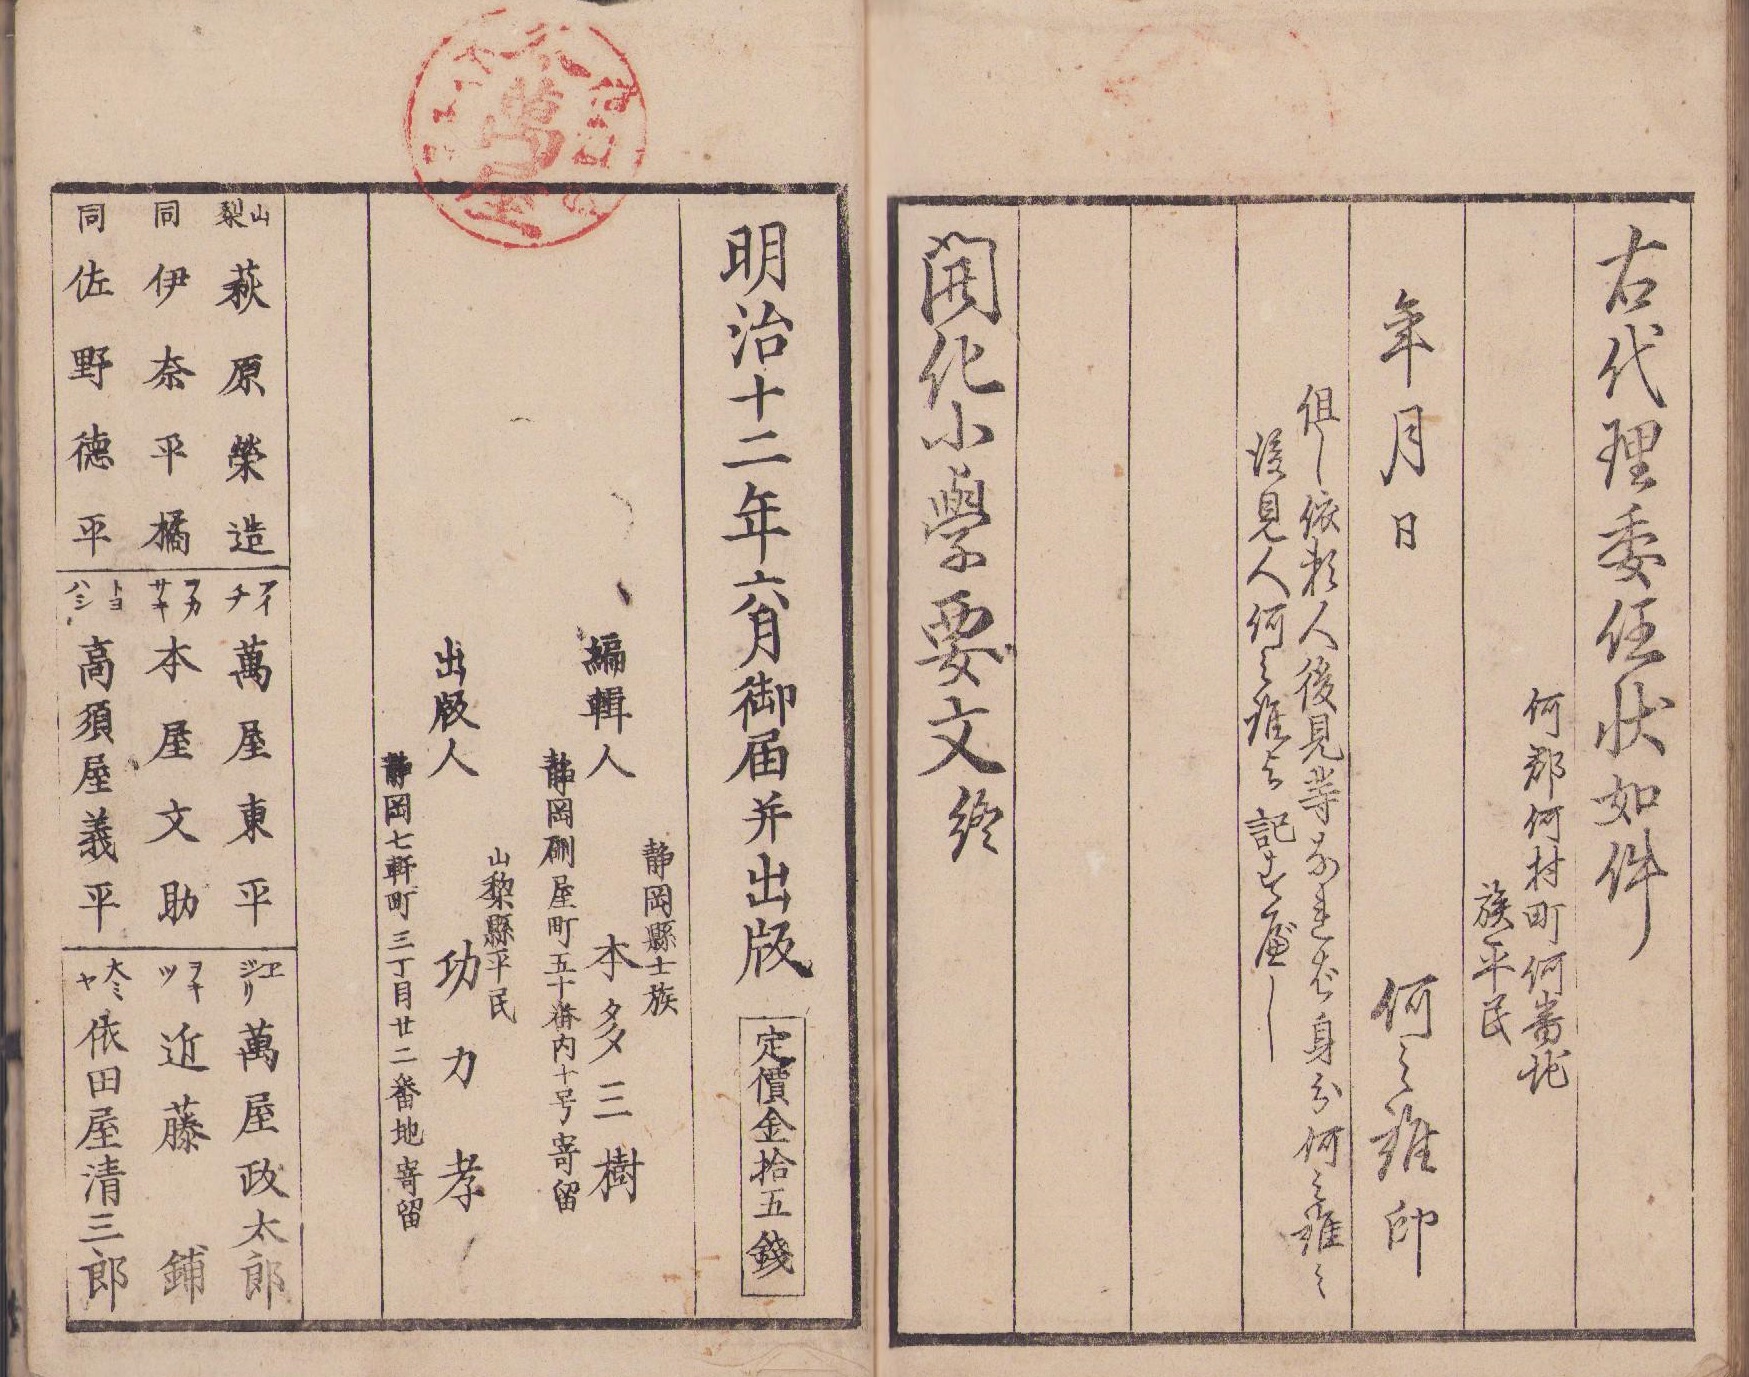 右代理委任状如件
何郡何村町何番地
族平民
年月日 何之誰印
但し依頼人後見等なれば身分何之誰之
後見人何之誰と記すべし
開化小學要文終
明治十二年六月御届并出版 定價金拾五錢
靜岡縣士族
編輯人 本多三樹
靜岡硎屋町五十番内十号寄留
山梨縣平民
出版人 功力孝
靜岡七軒町三丁目廿二番地寄留
山梨 萩原榮造
同 伊奈平橘
同 佐野德平
アイチ 萬屋東平
ヲカサキ 本屋文助
トヨハシ 高須屋義平
エジリ 萬屋政太郎
ヲキツ 近藤鋪
大ミヤ 依田屋清三郎